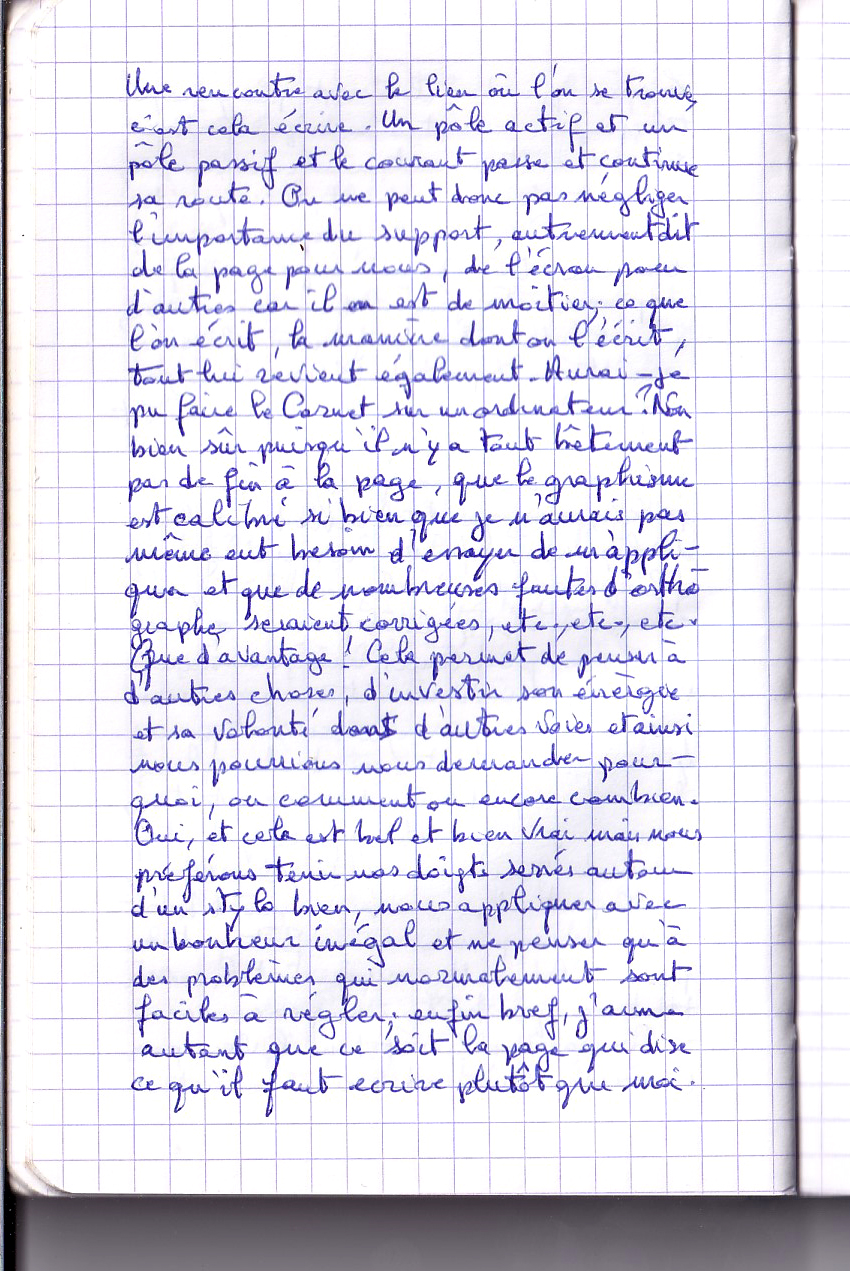 Une rencontre avec le lieu où l'on se trouve,
c'est cela écrire. Un pôle actif et un
pôle passif et le courant passe et continue
sa route. On ne peut donc pas négliger
l'importance du support, autrement dit
de la page pour nous, de l'écran pour
d'autres car il en est de moitier; ce que
l'on écrit, la manière dont on l'écrit,
tout lui revient également. Aurai-je
pu faire le Carnet sur un ordinateur? Non
bien sûr puisqu'il n'y a tout bêtement
pas de fin à la page, que le graphisme
est calibré si bien que je n'aurais pas
même eut besoin d'essayer de m'appli-
quer et que de nombreuses fautes d'ortho
graphe seraient corrigées, etc., etc., etc.
Que d'avantage! Cela permet de penser à
d'autres choses, d'investir son énérgie
et sa volonté dans d'autres voies et ainsi
nous pourrions nous demander pour-
quoi, ou comment ou encore combien.
Oui, et cela est bel et bien vrai mais nous
préférons tenir nos doigts serrés autour
d'un stylo bien, nous appliquer avec
un bonheur inégal et ne penser qu'à
des problèmes qui normalement sont
faciles à régler; enfin bref, j'aime
autant que ce soit la page qui dise
ce qu'il faut ecrire plutôt que moi.